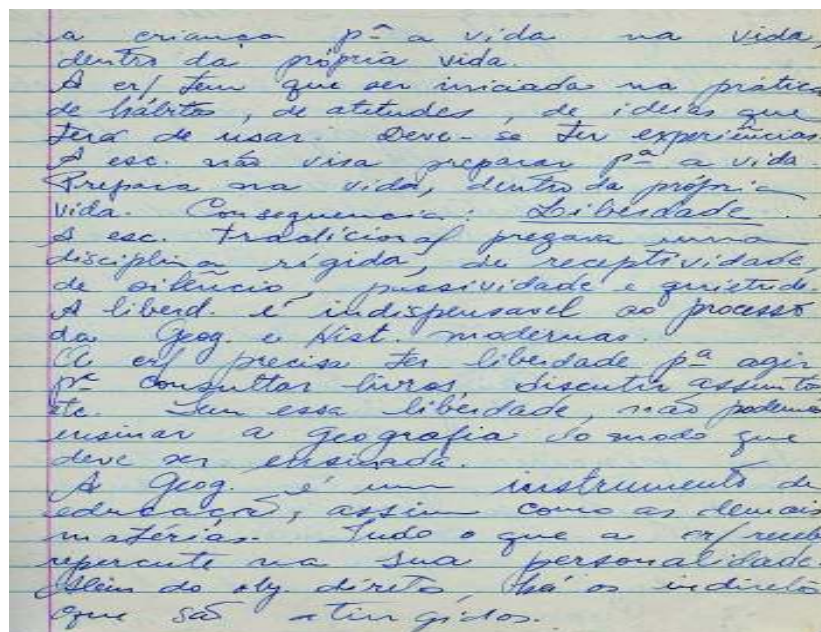 a criança pª a vida na vida,
dentro da própria vida.
A cr/ tem que ser iniciada na prática
de hábitos, de atitudes, de ideias que
terá de usar. Deve-se ter experiências.
A esc. não visa preparar pª a vida.
Prepara na vida, dentro da própria
vida. Consequencia: Liberdade.
A esc. tradicional pregava uma
disciplina rígida, de receptividade,
de silêncio, passividade e quietude.
A liberd. é indispensavel ao processo
da Geog. e Hist. modernas.
A cr/ precisa ter liberdade pª agir
pª consultar livros, discutir assuntos
etc. Sem essa liberdade, não podemos
ensinar a Geografia do modo que
deve ser ensinada.
A Geog. é um instrumento de
educação, assim como as demais
matérias. Tudo o que a cr/ receb
repercute na sua personalidade.
Além do obj. direto, há os indiretos
que são atingidos.